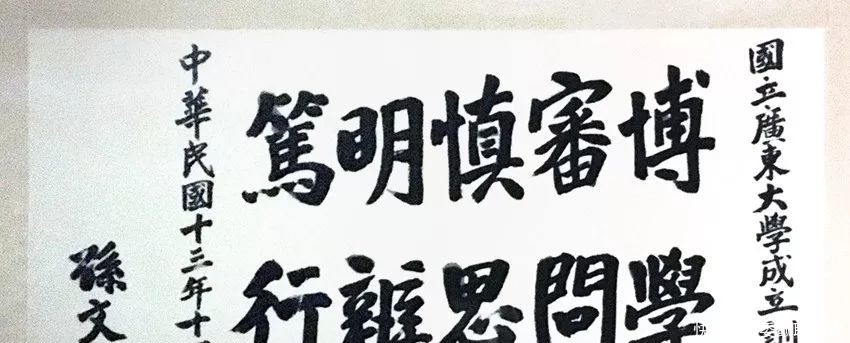 國立廣東大學成立訓
博學
審問
慎思
明辨
篤行
中華民國十三年十一
孫文